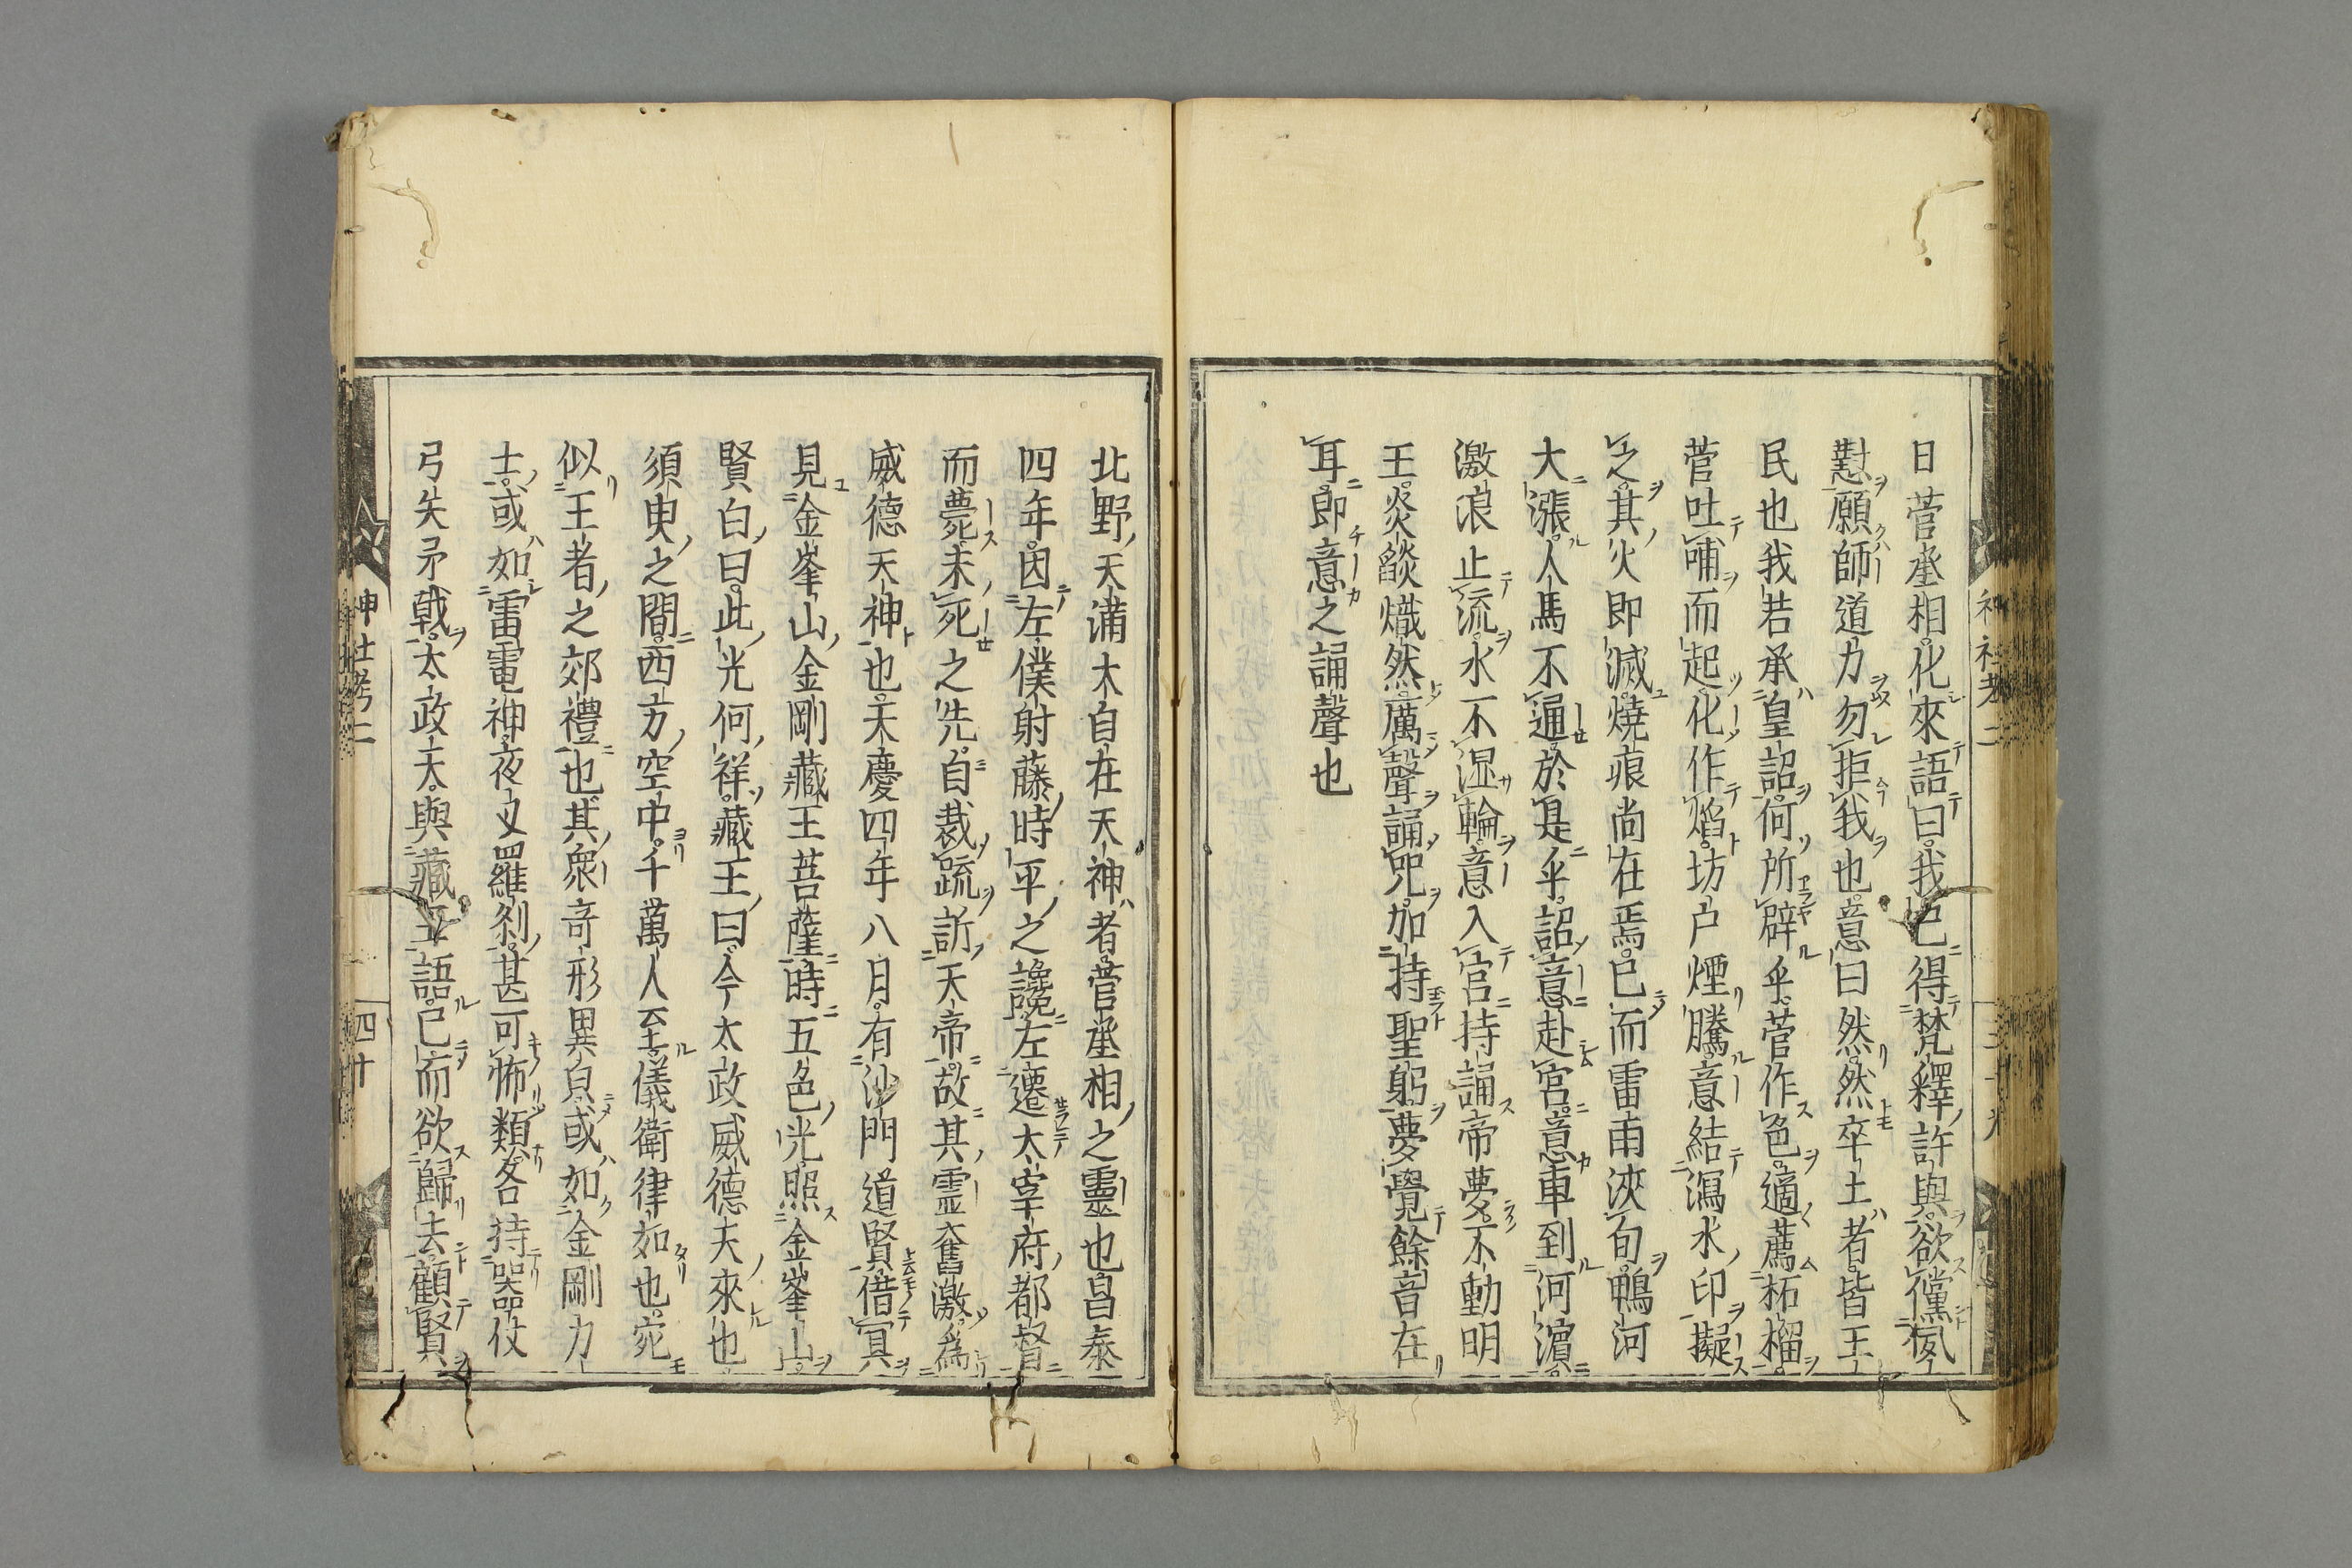 日菅丞相化來語曰我已得梵釋許與欲償夙
懟願師道力勿拒我也意曰然然卒土者皆王
民也我若承皇詔何所辟乎菅作色適薦柘榴
菅吐哺而起化作焰坊户煙騰意結瀉水印擬
之其火即滅燒痕尚在焉已而雷雨浹旬鴨河
大漲人馬不通於是乎詔意赴宮意車到河濵
激浪止流水不湿輪意入宮持誦帝夢不動明
王炎燄熾然厲聲誦咒加持聖躬夢覺餘音在
耳即意之誦聲也
北野天滿大自在天神者菅丞相之靈也昌泰
四年因左僕射藤時平之讒左遷太宰府都督
而薨未死之先自裁疏訴天帝故其霊奮激為
威德天神也天慶四年八月有沙門道賢借冥
見金峯山金剛藏王菩薩時五色光照金峯山
賢白曰此光何祥藏王曰今太政威德天來也
須臾之間西方空中千萬人至儀衛律如也宛
似王者之郊禮也其衆奇形異皃或如金剛力
士或如雷電神夜叉羅刹甚可怖類各持器仗
弓矢矛戟太政天與藏王語已而欲歸去顧賢
神社考二
四十